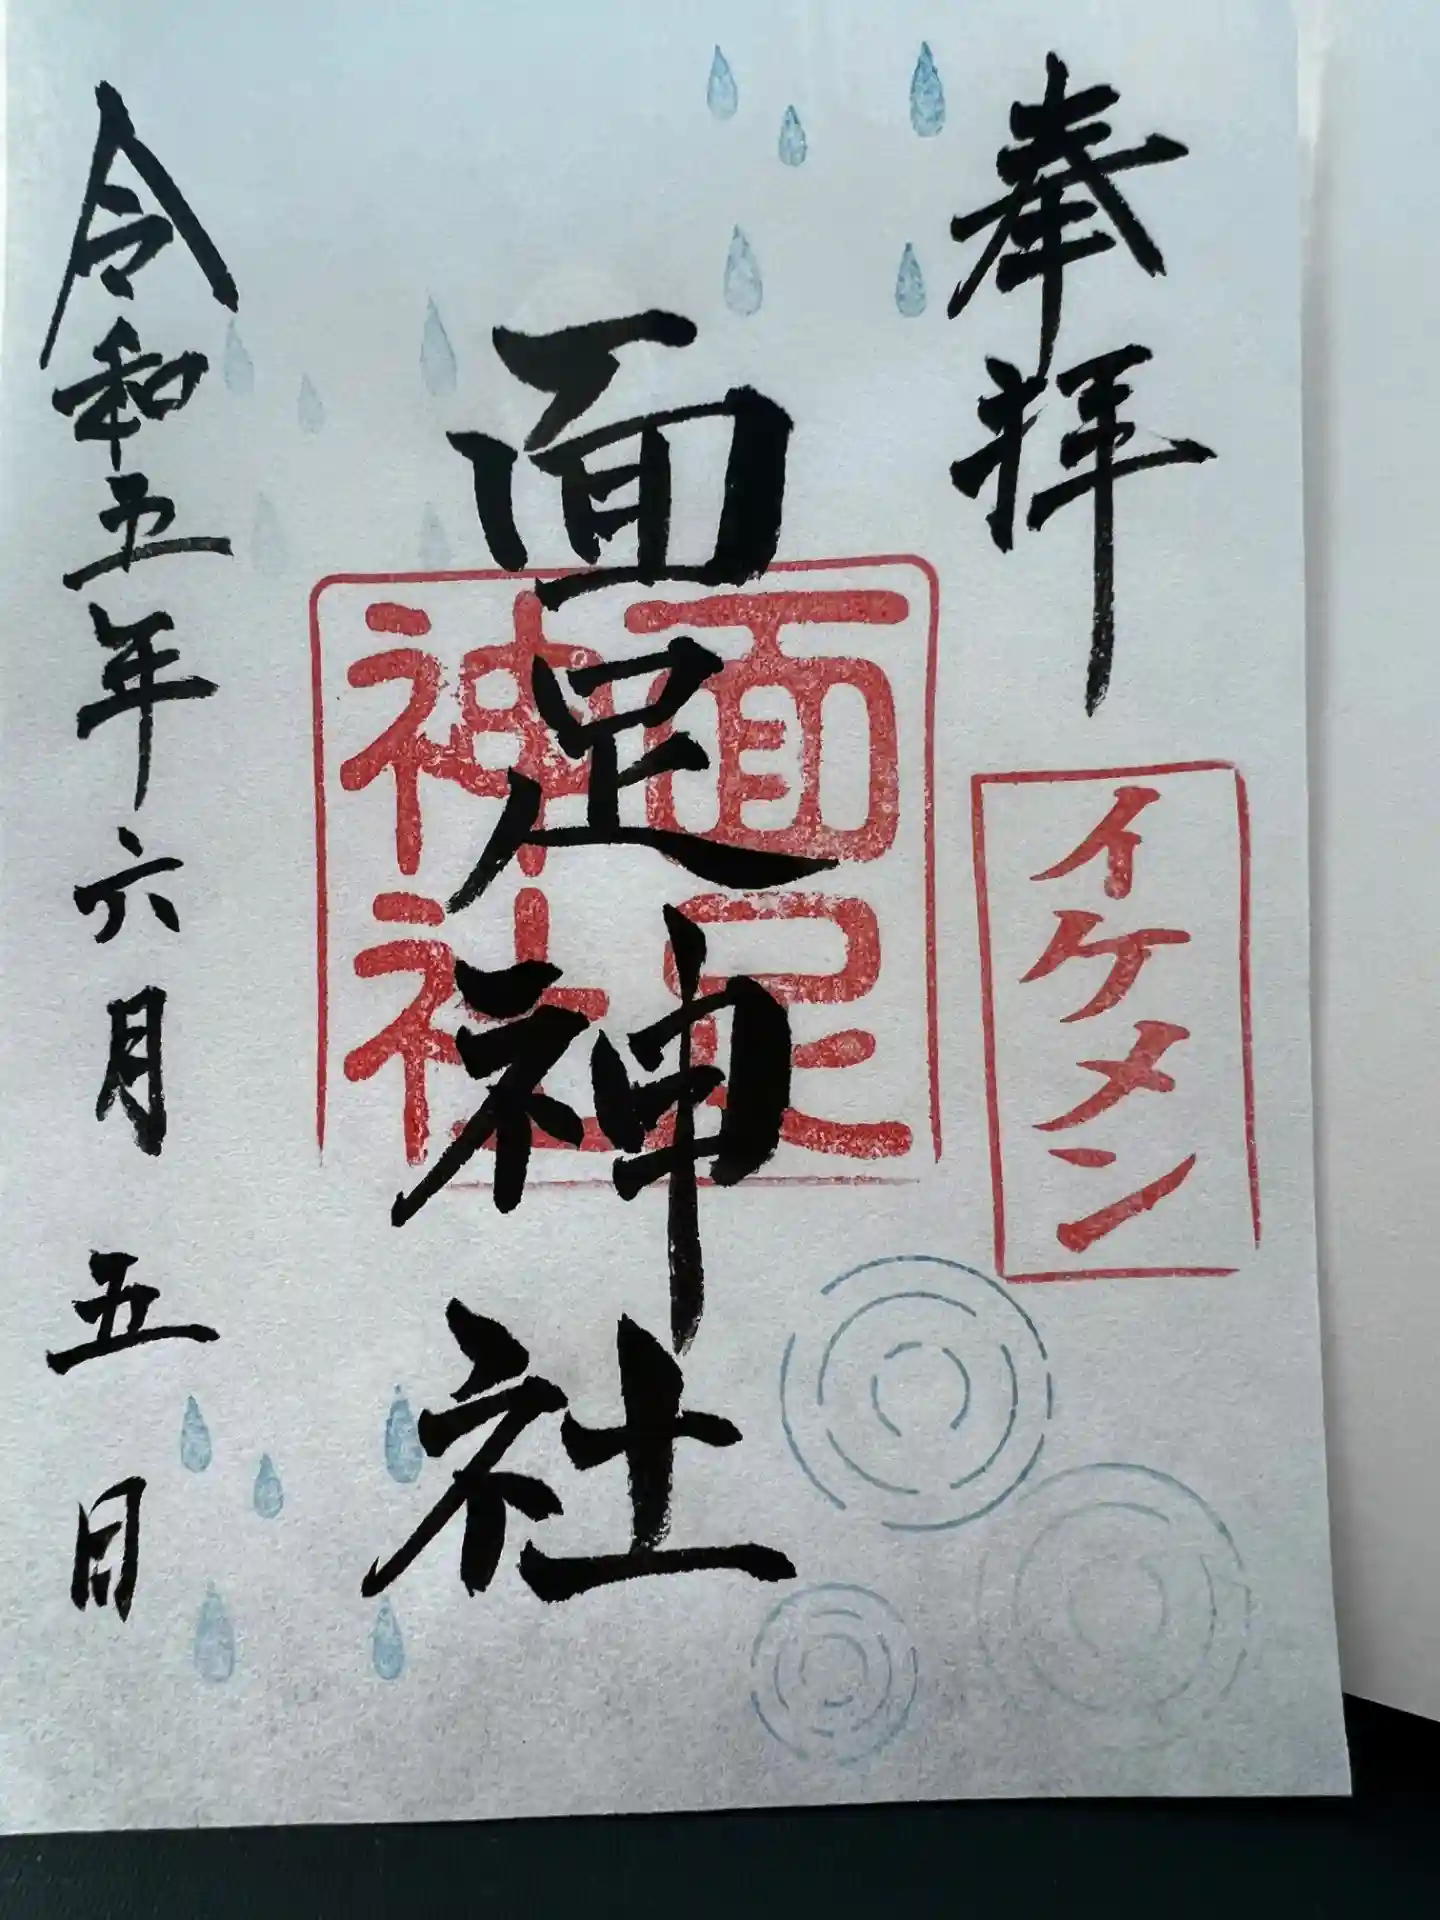 奉拝
イケメン
面足神社
面足
神社
令和五年六月五日